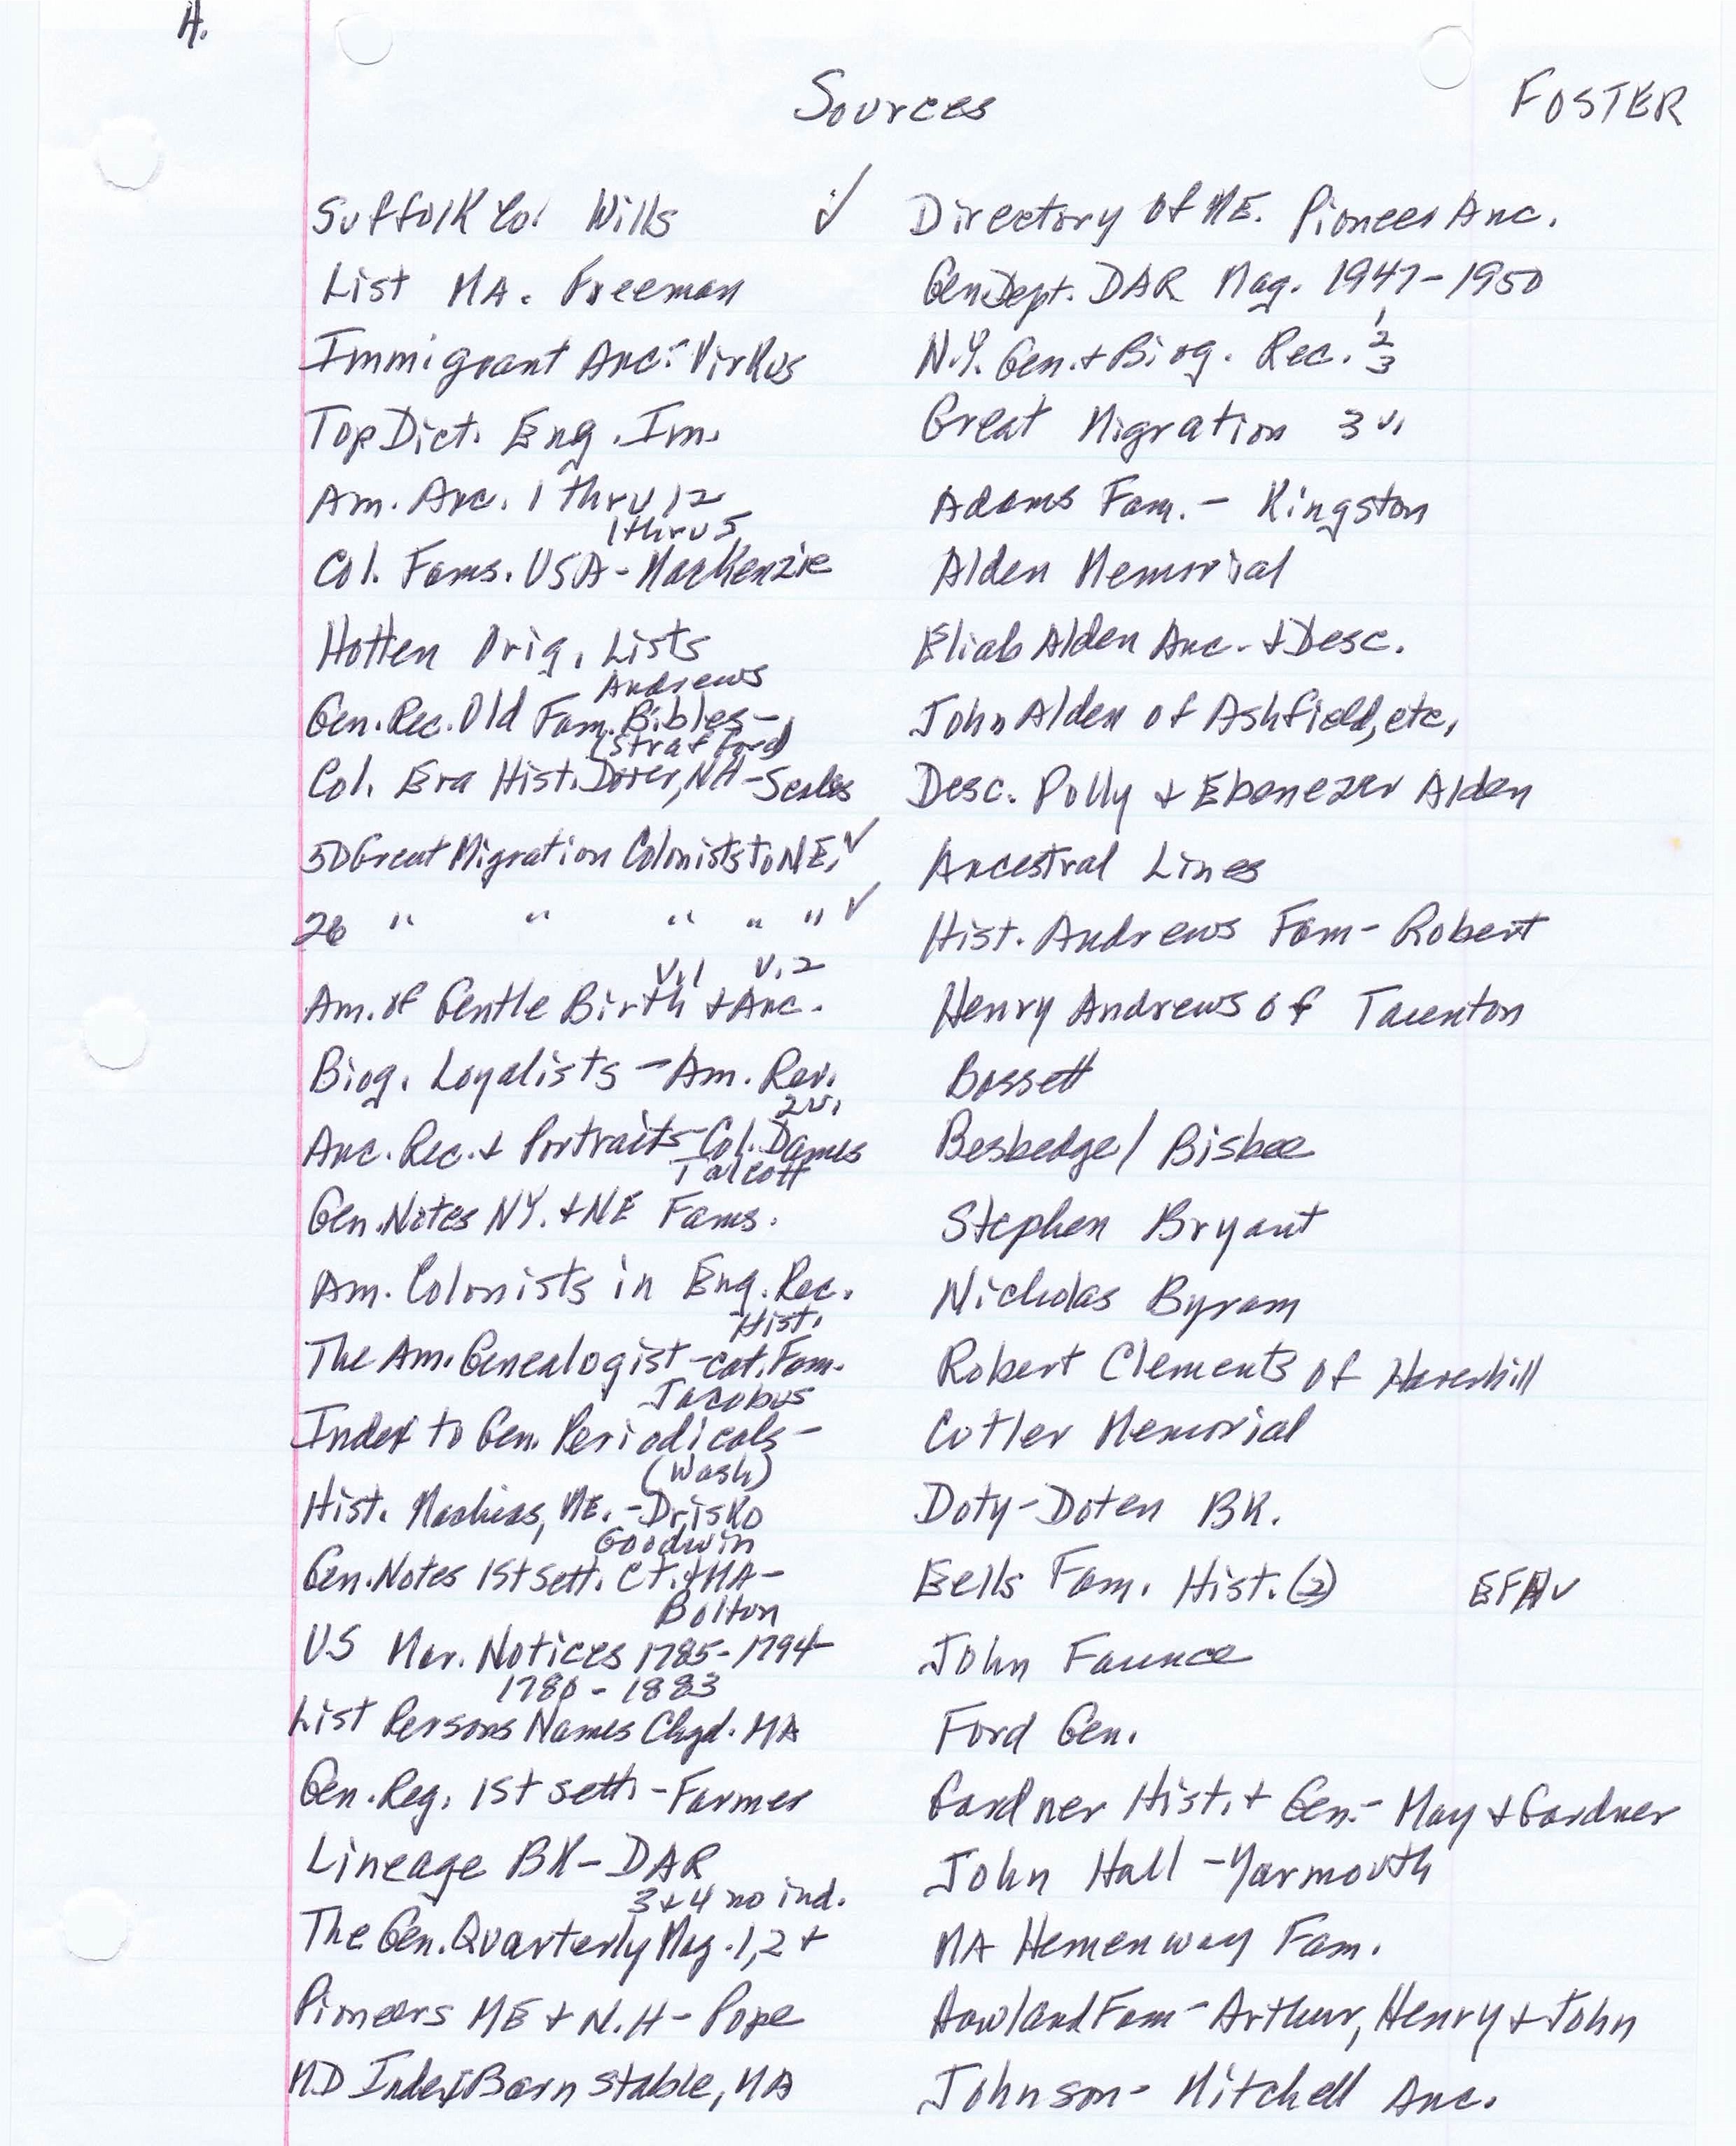 A.
Sources
FOSTER
Suffolk Co. Wills ✓
List MA. Freeman
Immigrant Anc: Virkus
Top Dict. Eng. Im.
Am. Anc. 1 thru 12
1 thru 5
Col. Fams. USA - MacKenzie
Hotten Orig. Lists
Andrews
Gen. Rec. Old Fam. Bibles -
(Strafford)
Col. Era Hist. Dover, NH - Scales
50 Great Migration Colonists to NE. ✓
26 " " " " " ✓
V.1 V.2
Am. of Gentle Birth + Anc.
Biog. Loyalists - Am. Rev.
2v.
Anc. Rec. + Portraits - Col. Dames
Talcott
Gen. Notes NY. + NE Fams.
Am. Colonists in Eng. Rec.
Hist.
The Am. Genealogist - cat. Fam.
Jacobus
Index to Gen. Periodicals -
(Wash)
Hist. Machias, ME. - Drisko
Goodwin
Gen. Notes 1st sett. CT. + MA -
Bolton
US Mar. Notices 1785 - 1794
1780 - 1883
List Persons Names Chgd. MA
Gen. Reg. 1st sett. - Farmer
Lineage BK - DAR
3 + 4 no ind.
The Gen. Quarterly Mag. 1, 2 +
Pioneers ME + N.H - Pope
MD Index Barnstable, MA
Directory of NE. Pioneer Anc.
Gen Dept. DAR Mag. 1947 - 1950
N.Y. Gen. + Biog. Rec. 1 2 3
Great Migration 3 v.
Adams Fam. - Kingston
Alden Memorial
Eliab Alden Anc. + Desc.
John Alden of Ashfield, etc.
Desc. Polly + Ebenezer Alden
Ancestral Lines
Hist. Andrews Fam - Robert
Henry Andrews of Taunton
Bassett
Besbedge / Bisbee
Stephen Bryant
Nicholas Byram
Robert Clements of Haverhill
Cutler Memorial
Doty-Doten BK.
Eells Fam. Hist. (2)
John Faunce
Ford Gen.
Gardner Hist. + Gen. - May + Gardner
John Hall - Yarmouth
MA Hemenway Fam.
Howland Fam - Arthur, Henry + John
Johnson - Mitchell Anc.